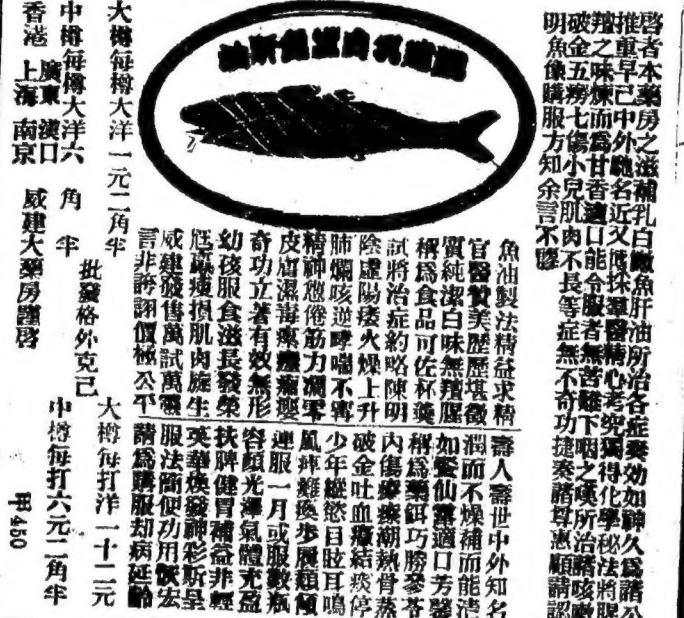 啓者本藥房之滋補乳白鰵魚肝油所治各症奏効如神久爲諸公
推重早已中外馳名近又採羣醫精心考究獨得化學秘法將腥
之味煉而爲甘香適口能令服者無苦難下咽之嘆所治諸咳嗽
破金五癆七傷小兒肌肉不長等症無不奇功捷奏諸尊惠顧請認
明魚像購服方知余言不謬
魚油製法精益求精
官醫贊美歷歷堪徵
質純潔白味無羶腥
稱爲食品可佐杯羹
試將治症約略陳明
陰虛陽痿火燥上升
肺爛咳逆哮喘不寧
精神倦筋力凋零
皮膚濕毒瘰癧瘤癭
奇功立著有效無形
幼孩服食滋長發榮
尫羸瘦損肌肉旋生
威建發售萬試萬靈
言非誇詡價極公平
壽人壽世中外知名
潤而不燥補而能清
如餐仙露適口芳馨
稱爲藥餌巧勝參苓
內傷療潮熱骨蒸
破金吐血痰結痰停
少年縱慾目眩耳鳴
風痺難後步履頹傾
連服一月或服數瓶
容顔光澤氣體充盈
扶脾健胃補益非輕
英華煥發神彩斯呈
服法簡便功用恢宏
請爲購服却病延齡
大樽每樽大洋一元二角半
中樽每樽大洋六角半
批發格外克己
大樽每打洋一十二元
中樽每打六元二角半
香港 廣東 漢口 上海 南京 威建大藥房謹啓
甲450